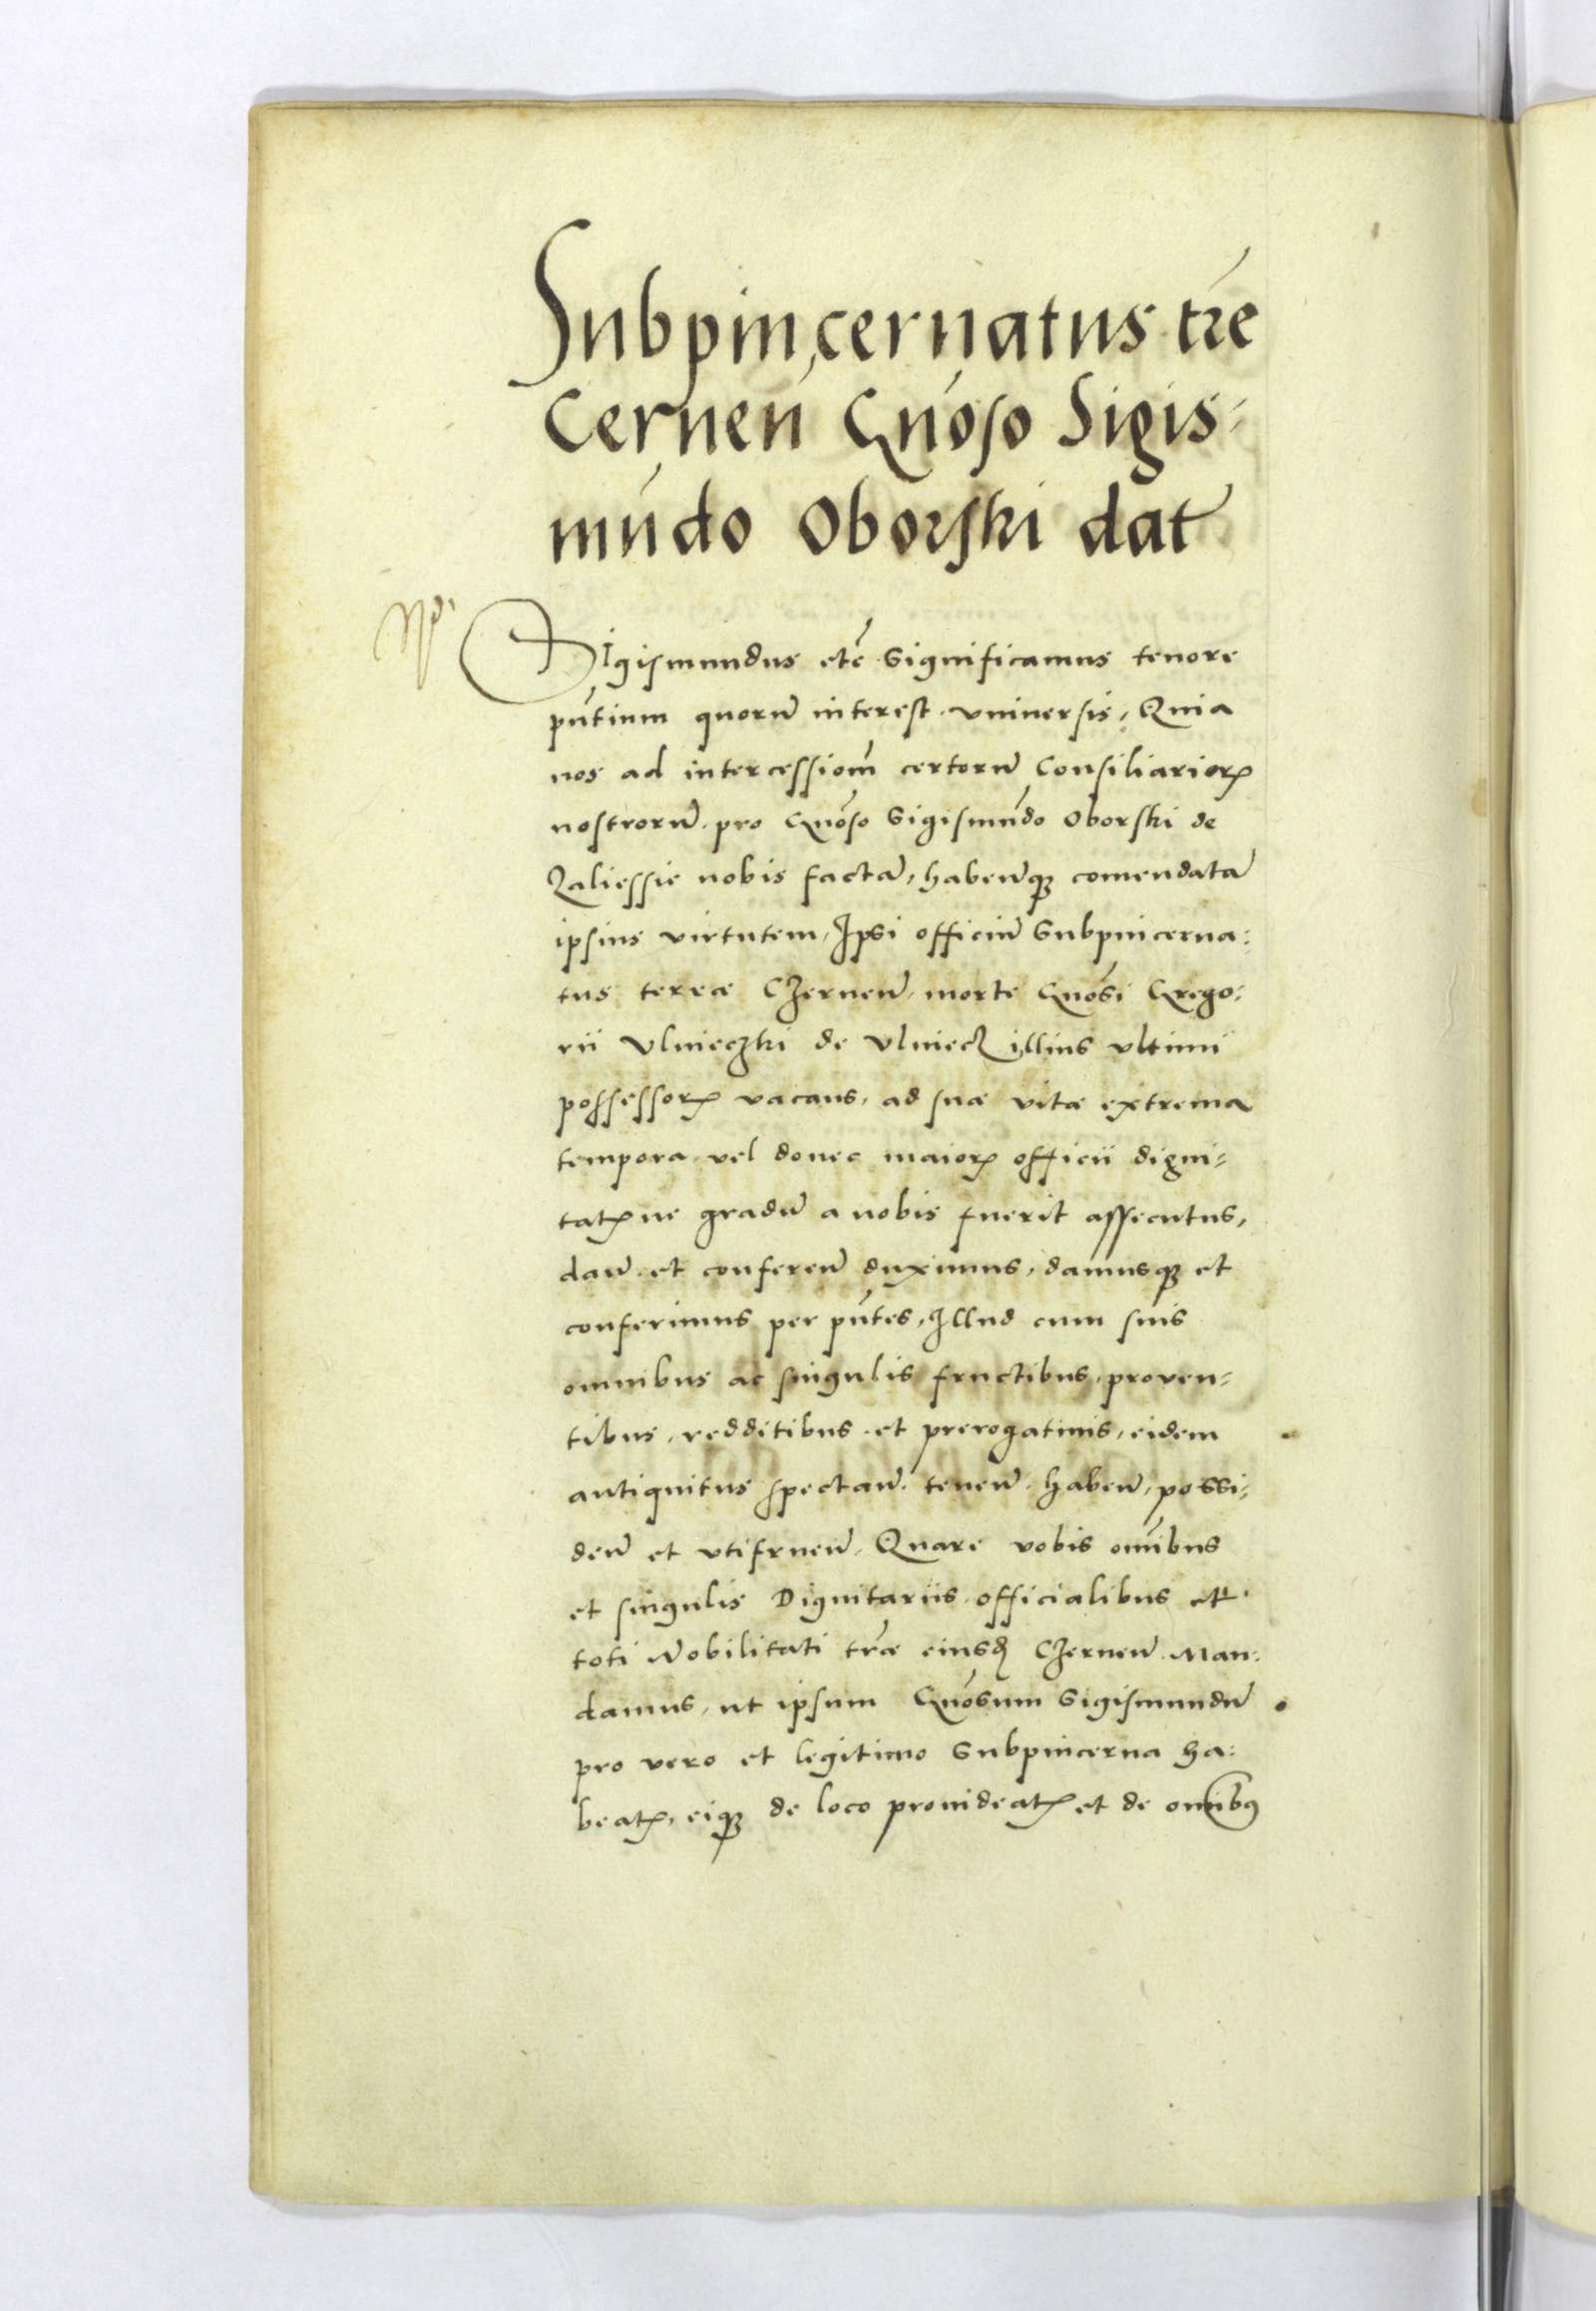 Subpincernatus tr̃e
Cerneñ Gñoso Sigis-
mũdo Oborski dat̃
Sigismundus etc̃ Significamus tenore
pñtium quorũ interest vniuersis, Quia
nos ad intercessiom̃ certorũ Consiliarioꝝ
nostrorũ pro Gñoso Sigismũdo Oborski de
Zaliessie nobis factã, habeñqꝫ comendatã
ipsius virtutem, Ipsi officiũ Subpincerna:
tus terræ Czerneñ, morte Gñosi Grego:
rii Vlnieczki de Vlniecz illius vltimi
possessorꝭ vacans, ad suæ vitæ extrema
tempora vel donec maiorꝭ officii digni-
tatꝭne gradũ a nobis fuerit assecutus,
dañ et confereñ duximus, damusqꝫ et
conferimus per pñtes, Illud cum suis
omnibus ac singulis fructibus, proven-
tibus, redditibus et prerogatiuis, eidem
antiquitus spectañ teneñ habeñ, possi-
deñ et vtifrueñ Quare vobis oĩnibus
et singulis Dignitariis officialibus et
toti Nobilitati tr̃æ eiusdꝫ Czerneñ Man:
damus, ut ipsum Gñosum Sigismundũ
pro vero et legitimo Subpincerna ha:
beatꝭ, eiqꝫ de loco prouideatꝭ et de omnibꝰ